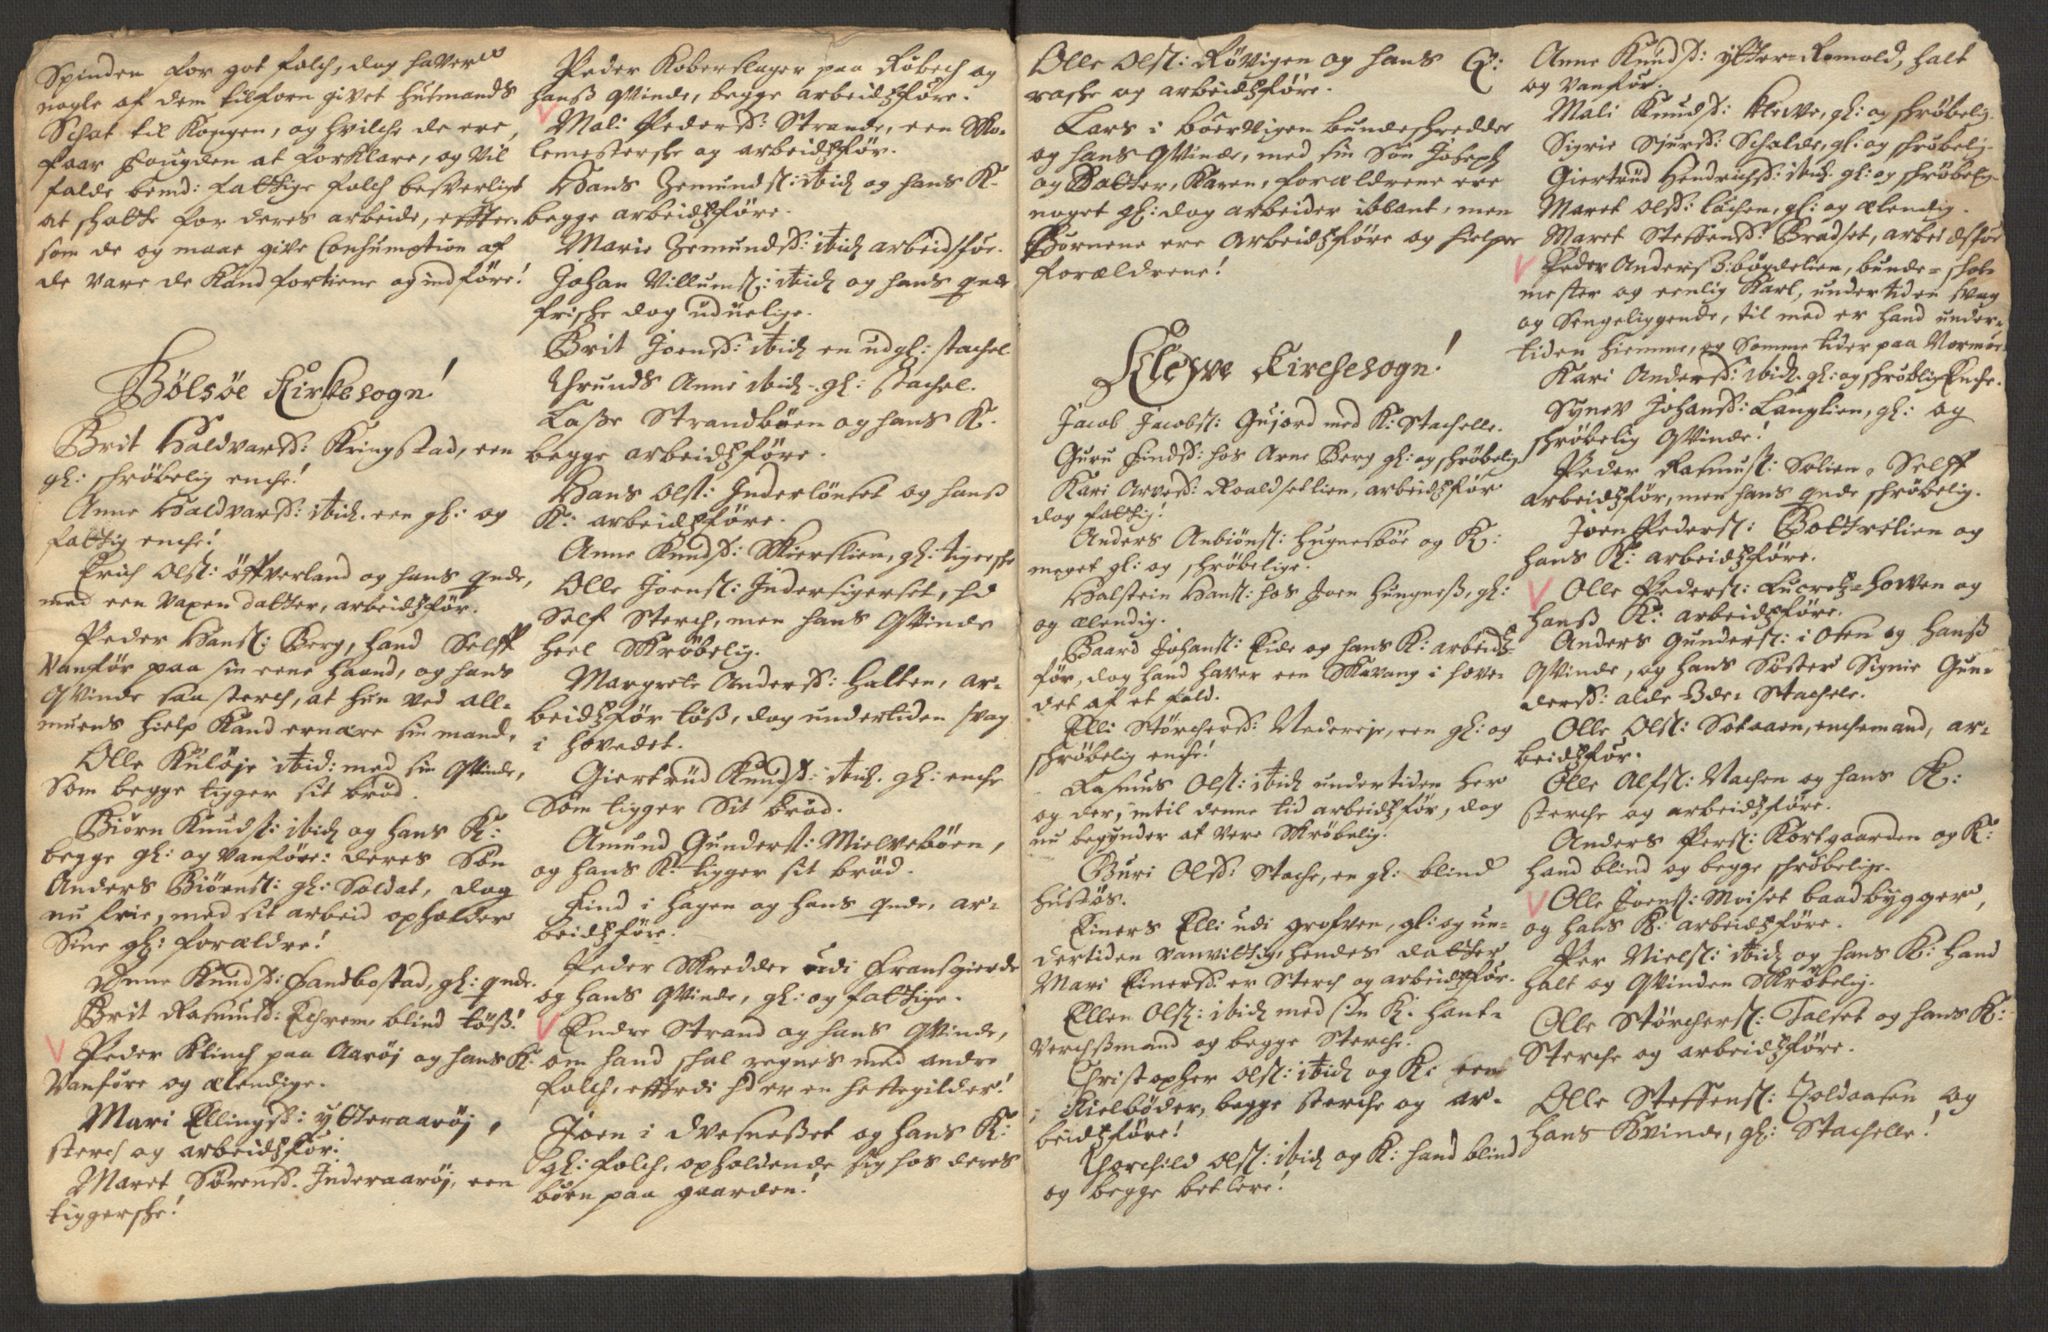 Spinden for got folch, dog haver
nogle af dem tilforn givet huusmands
Schat til Kongen, og hvilche de ere,
faar fougden at forklare, og vil
falde bemd: fattige folch besverligt
at schatte for deres arbeide, effter-
som de og maae give Consumption af
de vare de kand fortiene og indföre!
Bölsöe Kirkesogn!
Brit Haldvarsd: Kringstad, een
gl: schröbelig enche!
Anne Haldvarsd: ibid. een gl: og
fattig enche!
Erich Olss: öffverland og hans qvde,
med een vaxen datter, arbeidsför.
Peder Hanss: Berg, hand Selff
vanför paa sin eene haand, og hans
Qvinde saa sterch, at hun ved all-
muens hielp kand ernære sin mand.
Olle Kulöje ibid: med sin Qvinde,
Som begge tigger sit bröd.
Biörn Knuds: ibid og hans K:
begge gl: og vanföre: deres Sön
Anders Biörns: gl: Soldat, dog
nu frie, med sit arbeid opholder
Sine gl: forældre!
Anne Knudsd: Fandbostad, gl: qvde.
Brit Rasmusd: Echrem, blind töss!
Peder Klinch paa Aaröj og hans K:
vanföre og ælendige.
Mari Ellingsd: ytteraaröj,
sterch og arbeidsför:
Maret Sörensd. Inderaaröj, een
tiggersche!
Peder Koberslager paa Röbech og
hanss Qvinde, begge arbeidsföre.
Mali Pedersd: Strande, een Sko-
lemestersche og arbeidsför.
Hans Zemunds: ibid og hans K.
begge arbeidsföre.
Marie Zemundsd: ibid arbeidsför.
Johan Villums: ibid og hans qvde
frische dog uduelige.
Brit Joensd: ibid en ud gl: stachel
Thrunds Anne ibid. gl: stachel.
Lasse Strandböen og hans K.
begge arbeidsföre.
Hans Ols: Inderlönset og hanss
K: arbeidsföre.
Anne Knudsd: Skierslien, gl: tigersche
Olle Joens: Indersigerset, hd
Self Sterch, men hans Qvinde
heel Skröbelig.
Margrete Andersd: Halten, ar-
beidsför töss, dog undertiden svag
i hovedet.
Giertrud Knudsd: ibid. gl: enche
Som tigger Sit bröd.
Amund Gunders: Mielveböen,
og hans K: tigger sit bröd.
Find i Hagen og hans qvde, ar-
beidsföre.
Peder Skredder udi Fransgierde
og hans Qvinde, gl: og fattige.
Endre Strand og hans Qvinde,
om hand schal regnes med andre
folch, efftrdi hd er en hestegilder!
Joen i Dvesnesset og hans K:
gl: folch, opholdende sig hos deres
börn paa gaarden!
Olle Ols: Rövigen og hans K:
rasche og arbeidsföre.
Lars i böervigen bundeschredder
og hans Qvinde, med sin Sön Joseph
og Datter, Karen, forældrene ere
noget gl: dog arbeider iblant, men
Börnene ere arbeidsföre og hielper
forældrene!
Kleve Kirchesogn!
Jacob Jacobs: Gujord med K: Stachelle.
Guru Findsd: hos Arne Berg gl: og schröbelig
Kari Arvesd: Roaldsetlien, arbeidsför
dog fattig!
Anders Anbiöns: Hugnesböe og K:
meget gl: og schröbelige.
Halstein Hans: hos Joen Hungness, gl:
og ælendig.
Baard Johans: Eide og hans K: arbeids-
för, dog hand haver een Skavang i hove-
det af et fald.
Elli Störchersd: Nedereje, een gl: og
schröbelig enche!
Rasmus Ols: ibid undertiden her
og der, intil denne tid arbeidsför, dog
nu begynder at vere Skröbelig.
Guri Olsd: Stache, en gl: blind
hustös.
Einers Elli udi grofven, gl: og un-
dertiden vanvittig, hendes datter
Mari Einersd: er Sterch og arbeidsför.
Ellen Ols: ibid med sin K. hant-
verchssmand og begge Sterche.
Christopher Ols: ibid og K: een
Kielböder, begge sterche og ar-
beidsföre!
Thorchild Ols: ibid og K: hand blind
og begge betlere!
Anne Knudsd: ytter-Romold, halt
og vanför.
Mali Knudsd: Kleve, gl: og schröbelig.
Sigrie Sjursd: Schalde, gl: og schröbelig.
Giertrud Hendrichsd: ibid. gl: og schröbelig.
Maret Olsd: Lachen, gl: og ælendig.
Maret Steffensd: Bradset, arbeidsför
Peder Anderss: bögdelien, bunde-schol-
mester og eenlig Karl, undertiden svag
og Sengeliggende, til med er hand under-
tiden hiemme, og Somme tider paa Normör.
Kari Andersd: ibid. gl: og schröblig Enche.
Synev Johansd: Langlien, gl: og
schröbelig Qvinde!
Peder Rasmus: Solien, Selff
arbeidsför, men hans qvde schröbelig.
Joen Peders: Bottrelien og
hans K: arbeidsföre.
Olle Peders: Lucretz-Howen og
hanss K: arbeidsföre.
Anders Gunders: i Osen og hanss
Qvinde, og hans Söster Signie Gun-
dersd: alde 3de Stachele.
Olle Ols: Setaaen, enchemand, ar-
beidsför.
Olle Alfs: Nachen og hans K:
sterche og arbeidsföre.
Anders Pers: Kortgaarden og K:
hand blind og begge schröbelige.
Olle Joens: Moiset baadbygger,
og hans K: arbeidsföre.
Per Niels: ibid og hans K: hand
halt og Qvinden Skröbelig.
Olle Störchers: Talset og hans K:
Sterche og arbeidsföre.
Olle Steffens: Toldaasen og
hans Kvinde, gl: Stachelle!